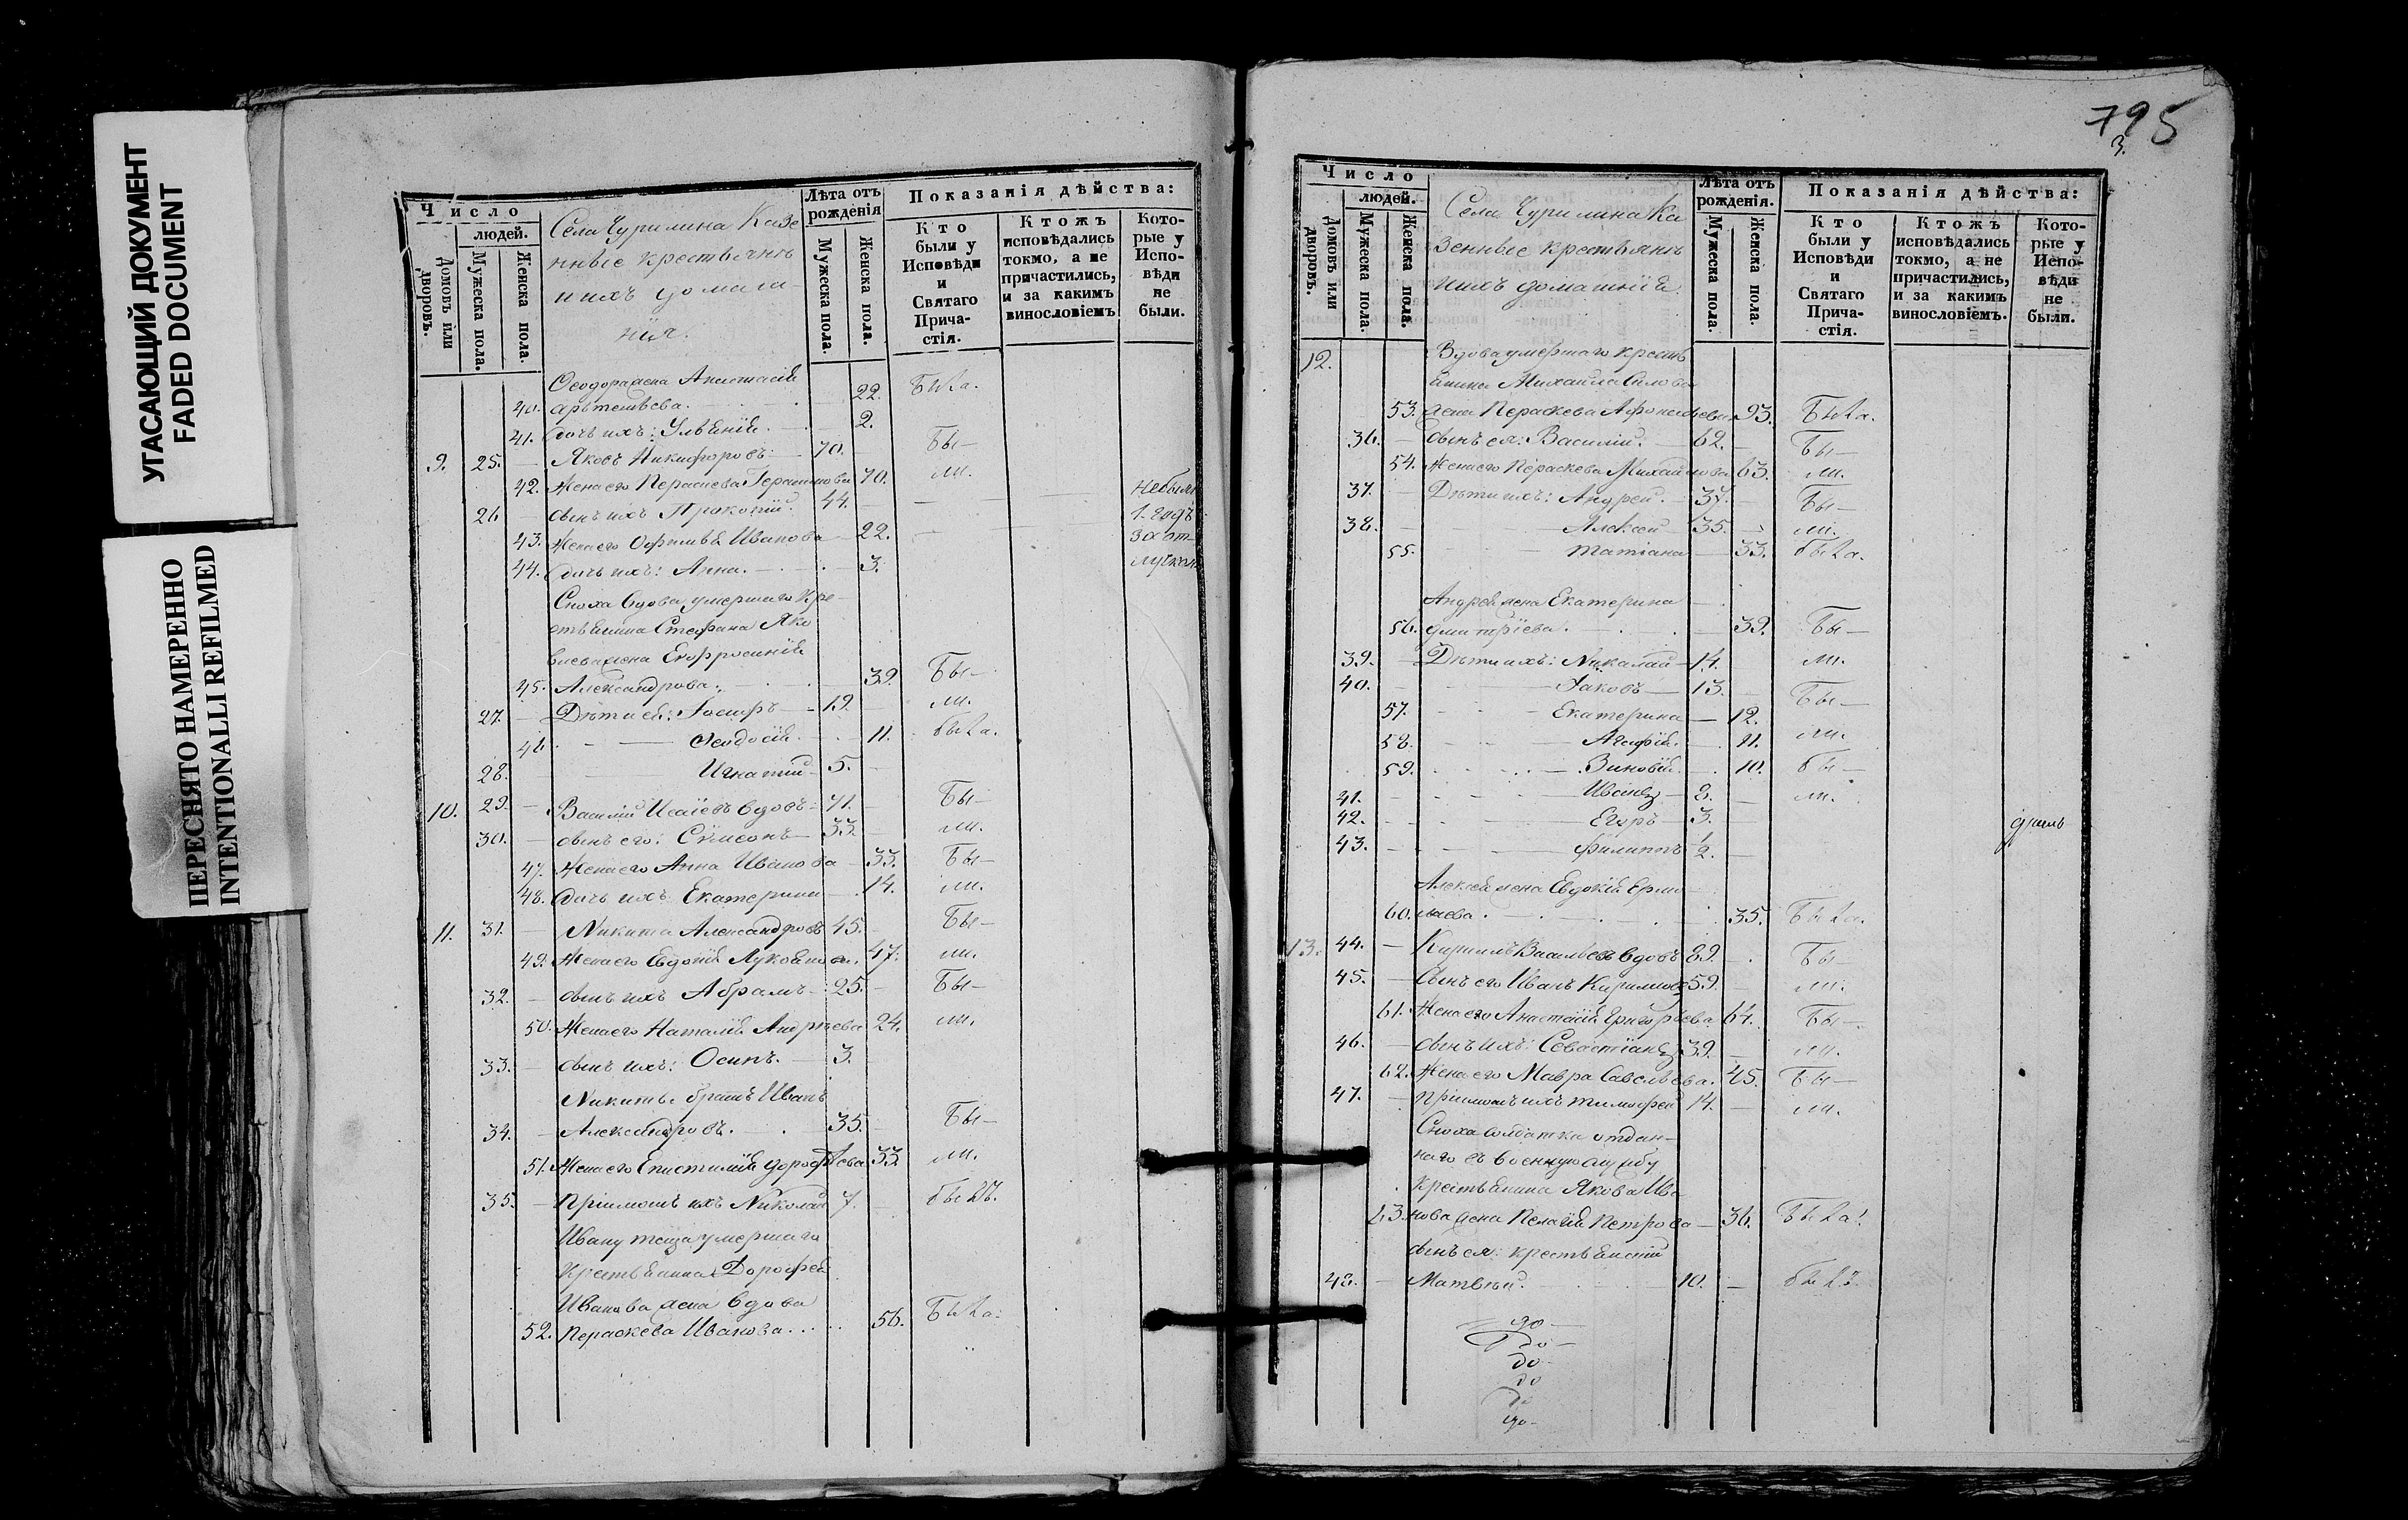 УГАСАЮЩИЙ ДОКУМЕНТ
FADED DOCUMENT
ПЕРЕСНЯТО НАМЕРЕННО
INTENTIONALLI REFILMED
Число
людей.
Домовъ или дворовъ.
Мужеска пола.
Женска пола.
Села Чурилина Казе
нные крестьянѣ
и ихъ домаш-
нія.
Лѣта отъ рожденія
Мужеска пола.
Женска пола.
Показанія дѣйства:
Кто были у Исповѣди и Святаго Причастія.
Ктожъ исповѣдались токмо, а не причастились, и за какимъ винословіемъ
Которые у Исповѣди не были.
Ѳеодора жена Анастасія
40. Артемьева. 22. Была.
41. Дочь ихъ: Ульянія. 2.
9. 25. Яковъ Никифоровъ: 70. Бы-
42. Жена его Параскева Герасимова 70. ли.
26 сынъ ихъ Прокопій. 44. небыли
43. Жена его Ивановa 22. 1. годъ
44. Дочь ихъ: Анна. 3. за от-
лучкою
Сноха вдова умершаго кре-
стьянина Стефана Яко
влева жена Евфросинія
45. Александрова. 39. Бы-
27. Дѣти ея: Іосифъ 19. ли.
46. Ѳеодосія. 11. была.
28. Игнатій 5.
10. 29. Василій Исаіевъ вдовъ 71. Бы-
30. сынъ его: Сѵмеонъ 33. ли.
47. Жена его Анна Иванова 33. Бы-
48. Дочь ихъ Екатерина 14. ли.
11. 31. Никита Александровъ 45. Бы-
49. Жена его Евдокія Лукоянова. 47. ли.
32. сынъ ихъ Абрамъ 25. Бы-
50. Жена его Наталія Андреева 24. ли.
33. сынъ ихъ: Осипъ. 3.
Никиты братъ Иванъ
34. Александровъ. 35. Бы-
51. Жена его Епистимія Дорофѣева 33 ли.
35. Пріимошъ ихъ Николай 7. былъ.
Ивану теща умершаго
крестьянина Дорофея
Иванова жена вдова
52. Параскева Иванова. 56. Была.
795
3.
Число
людей.
Домовъ или дворовъ.
Мужеска пола.
Женска пола.
Села Чурилина Ка
зенные крестьянѣ
и ихъ домашнія.
Лѣта отъ рожденія.
Мужеска пола.
Женска пола.
Показанія дѣйства:
Кто были у Исповѣди и Святаго Причастія.
Ктожъ исповѣдались токмо, а не причастились, и за какимъ винословіемъ.
Которые у Исповѣди не были.
12. Вдова умершаго кресть
янина Михаила Силова
53. жена Параскева Афонасьева 93. Была.
36. сынъ ея: Василій. 62. Бы-
54. Жена его Параскева Михайлова 63. ли.
37. Дѣти ихъ: Андрей. 37. Бы-
38. Алексей 35. ли.
55. Татіана 33. была.
Андрея жена Екатерина
56. Дмитріева. 39. Бы-
39. Дѣти ихъ: Николай 14. ли.
40. Іаковъ 13. Бы-
57. Екатерина 12.
58. Агафія. 11. ли.
59. Зиновія. 10. бы-
41. Иванъ 8. ли.
42. Егоръ 3.
43. Филиппъ 1/2.
Алексея жена Евдокія Ермо
60. лаева. 35. Была.
13. 44. Кирилъ Васильевъ вдовъ 89. Бы-
45. Сынъ его Иванъ Кириловъ 59. ли.
61. Жена его Анастасія Григорьева 64. Бы-
46. сынъ ихъ: Севастіанъ 39. ли.
62. Жена его Мавра Савельева. 45. Бы-
47. Пріимошъ ихъ Тимофей 14. ли.
Сноха солдатка отдан-
наго въ военную службу
крестьянина Якова Ива
63. нова жена Пелагія Петрова 36. Была.
сынъ ея: крестьянскій
48. Матвей. 10. былъ.
до
до
до
до
до